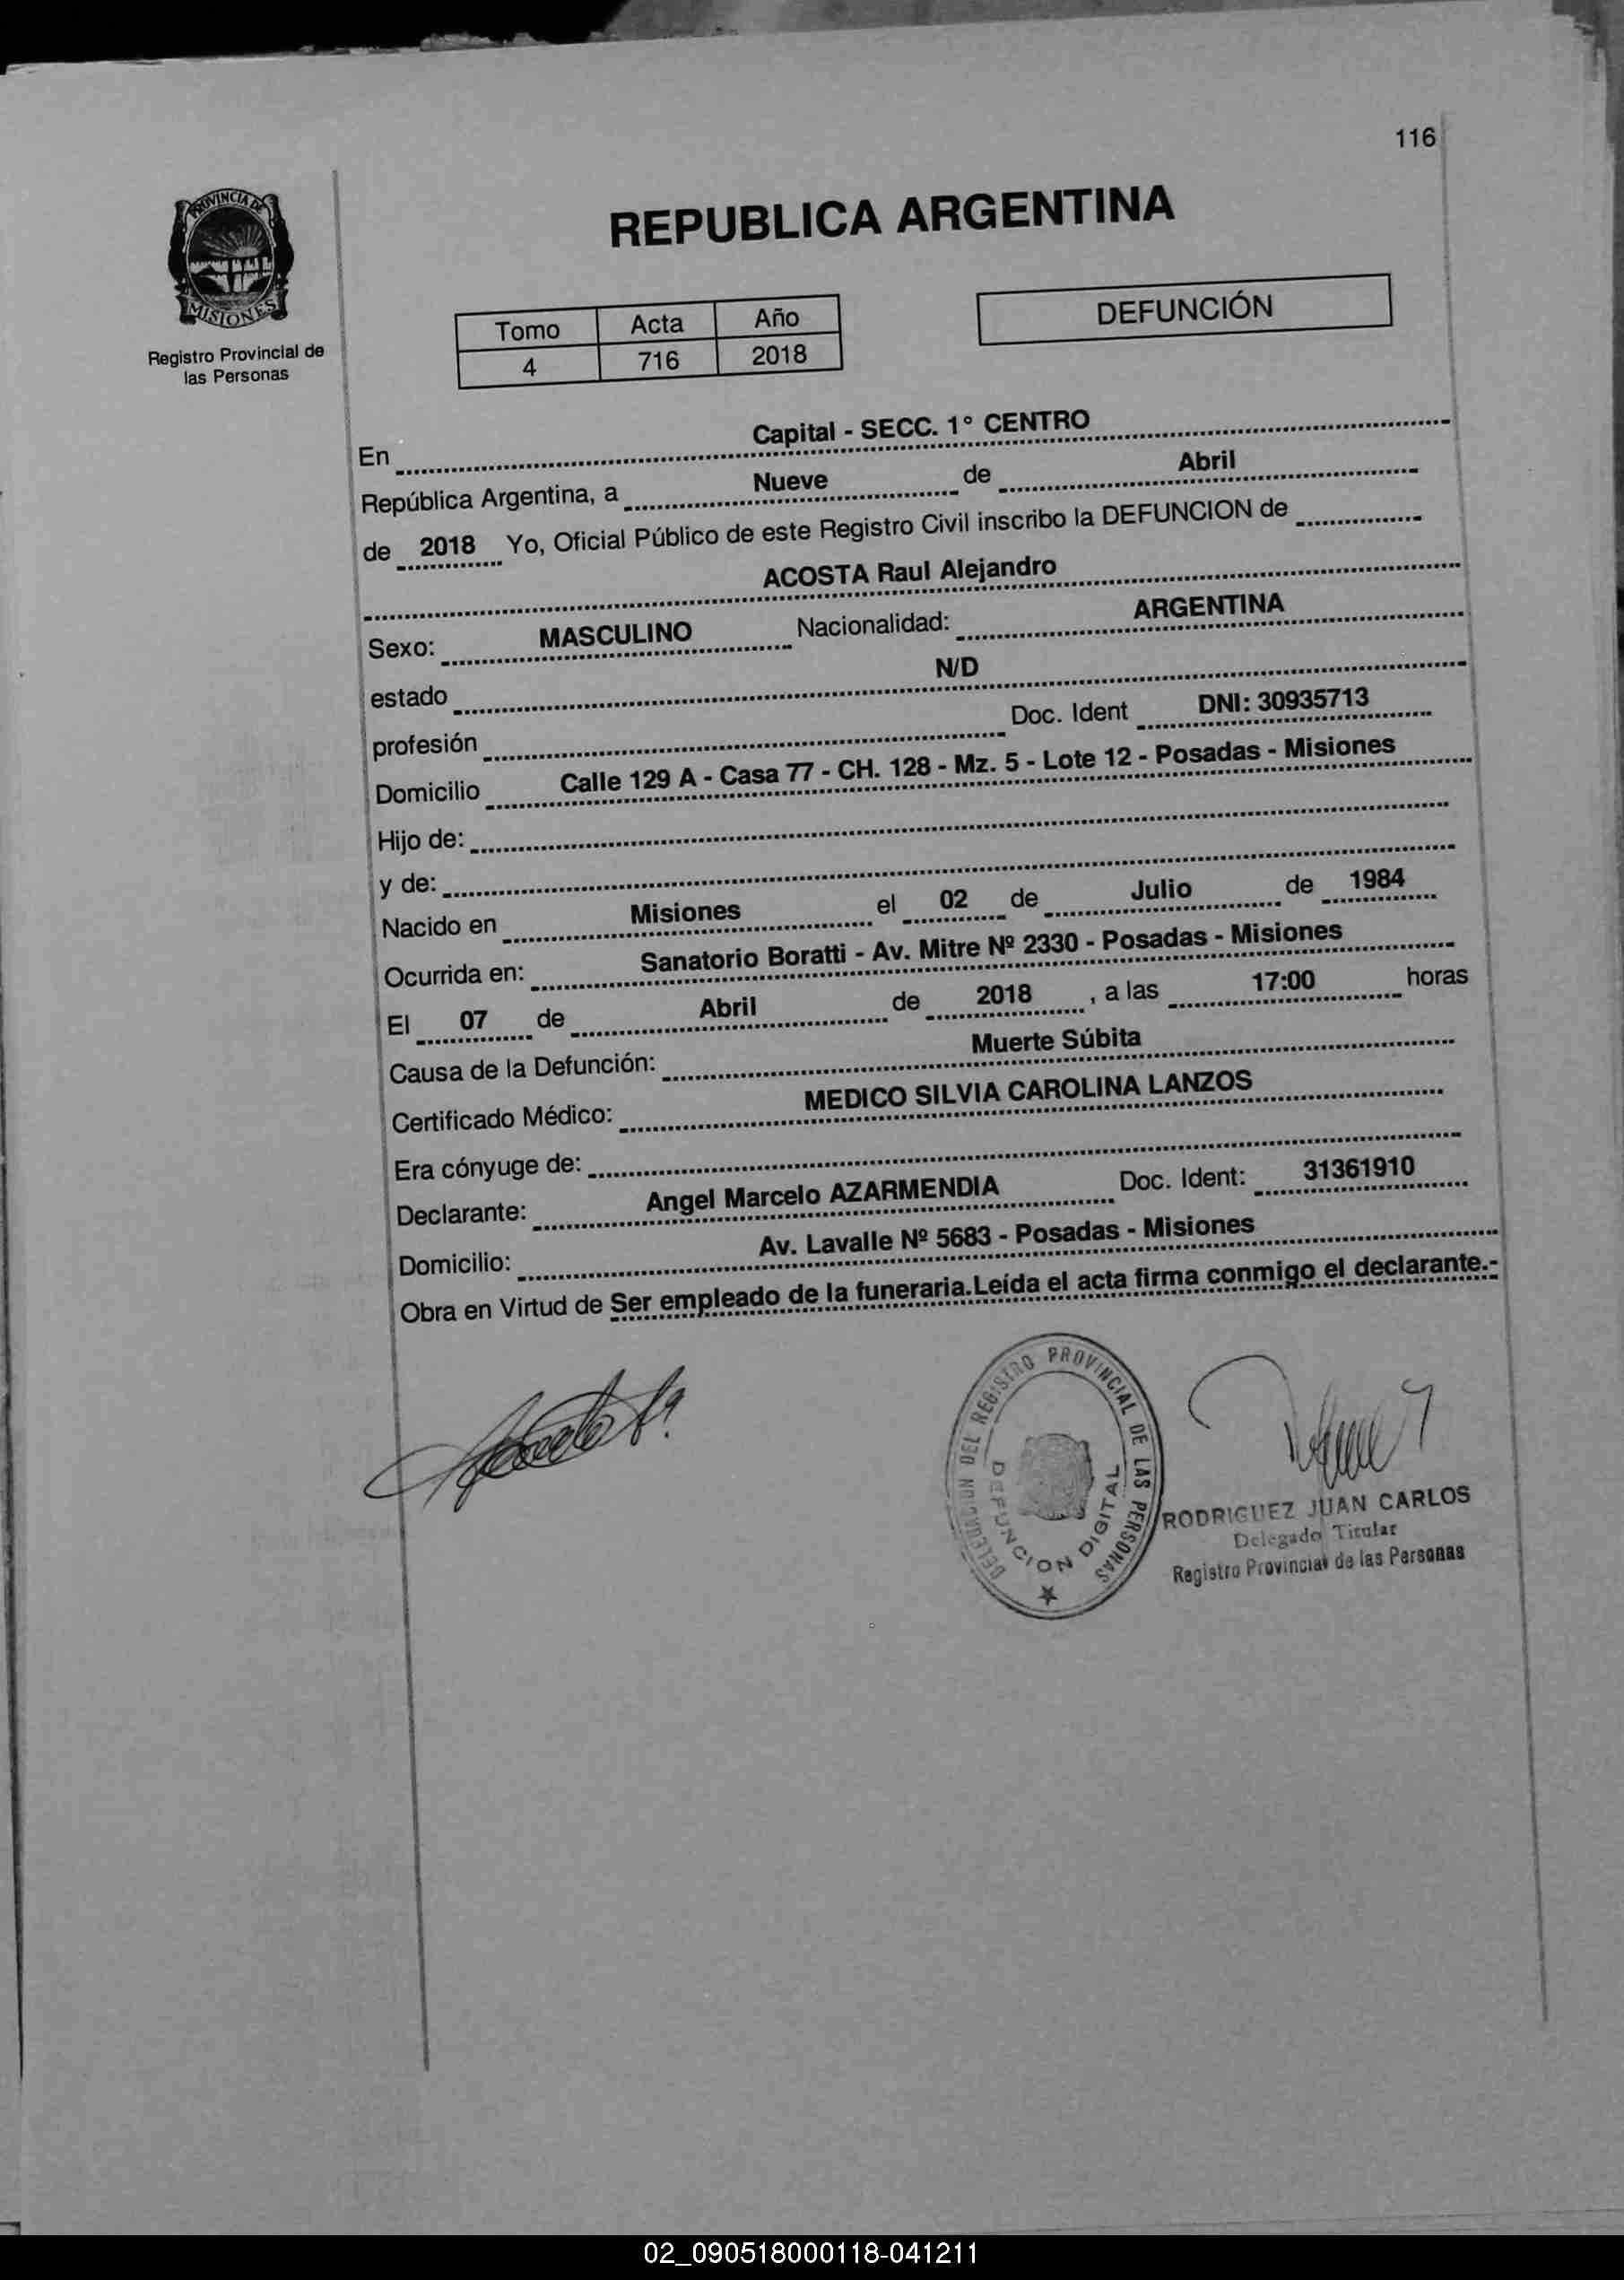 116
PROVINCIA DE
MISIONES
Registro Provincial de
las Personas
REPUBLICA ARGENTINA
Tomo Acta Año
4 716 2018
DEFUNCIÓN
En Capital - SECC. 1° CENTRO
República Argentina, a Nueve de Abril
de 2018 Yo, Oficial Público de este Registro Civil inscribo la DEFUNCION de
ACOSTA Raul Alejandro
Sexo: MASCULINO Nacionalidad: ARGENTINA
estado N/D
profesión Doc. Ident DNI: 30935713
Domicilio Calle 129 A - Casa 77 - CH. 128 - Mz. 5 - Lote 12 - Posadas - Misiones
Hijo de:
y de:
Nacido en Misiones el 02 de Julio de 1984
Ocurrida en: Sanatorio Boratti - Av. Mitre Nº 2330 - Posadas - Misiones
El 07 de Abril de 2018 , a las 17:00 horas
Causa de la Defunción: Muerte Súbita
Certificado Médico: MEDICO SILVIA CAROLINA LANZOS
Era cónyuge de:
Declarante: Angel Marcelo AZARMENDIA Doc. Ident: 31361910
Domicilio: Av. Lavalle Nº 5683 - Posadas - Misiones
Obra en Virtud de Ser empleado de la funeraria.Leída el acta firma conmigo el declarante.-
DELEGACION DEL REGISTRO PROVINCIAL DE LAS PERSONAS
DEFUNCION DIGITAL
RODRIGUEZ JUAN CARLOS
Delegado Titular
Registro Provincial de las Personas
02_090518000118-041211